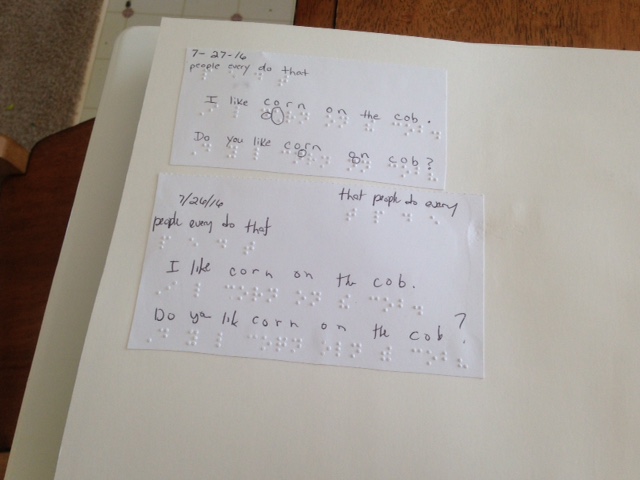 7-27-16
people every do that
I like corn on the cob.
Do you like corn on cob?
7/26/16
that people do every
people every do that
I like corn on the cob.
Do you lik corn on the cob?